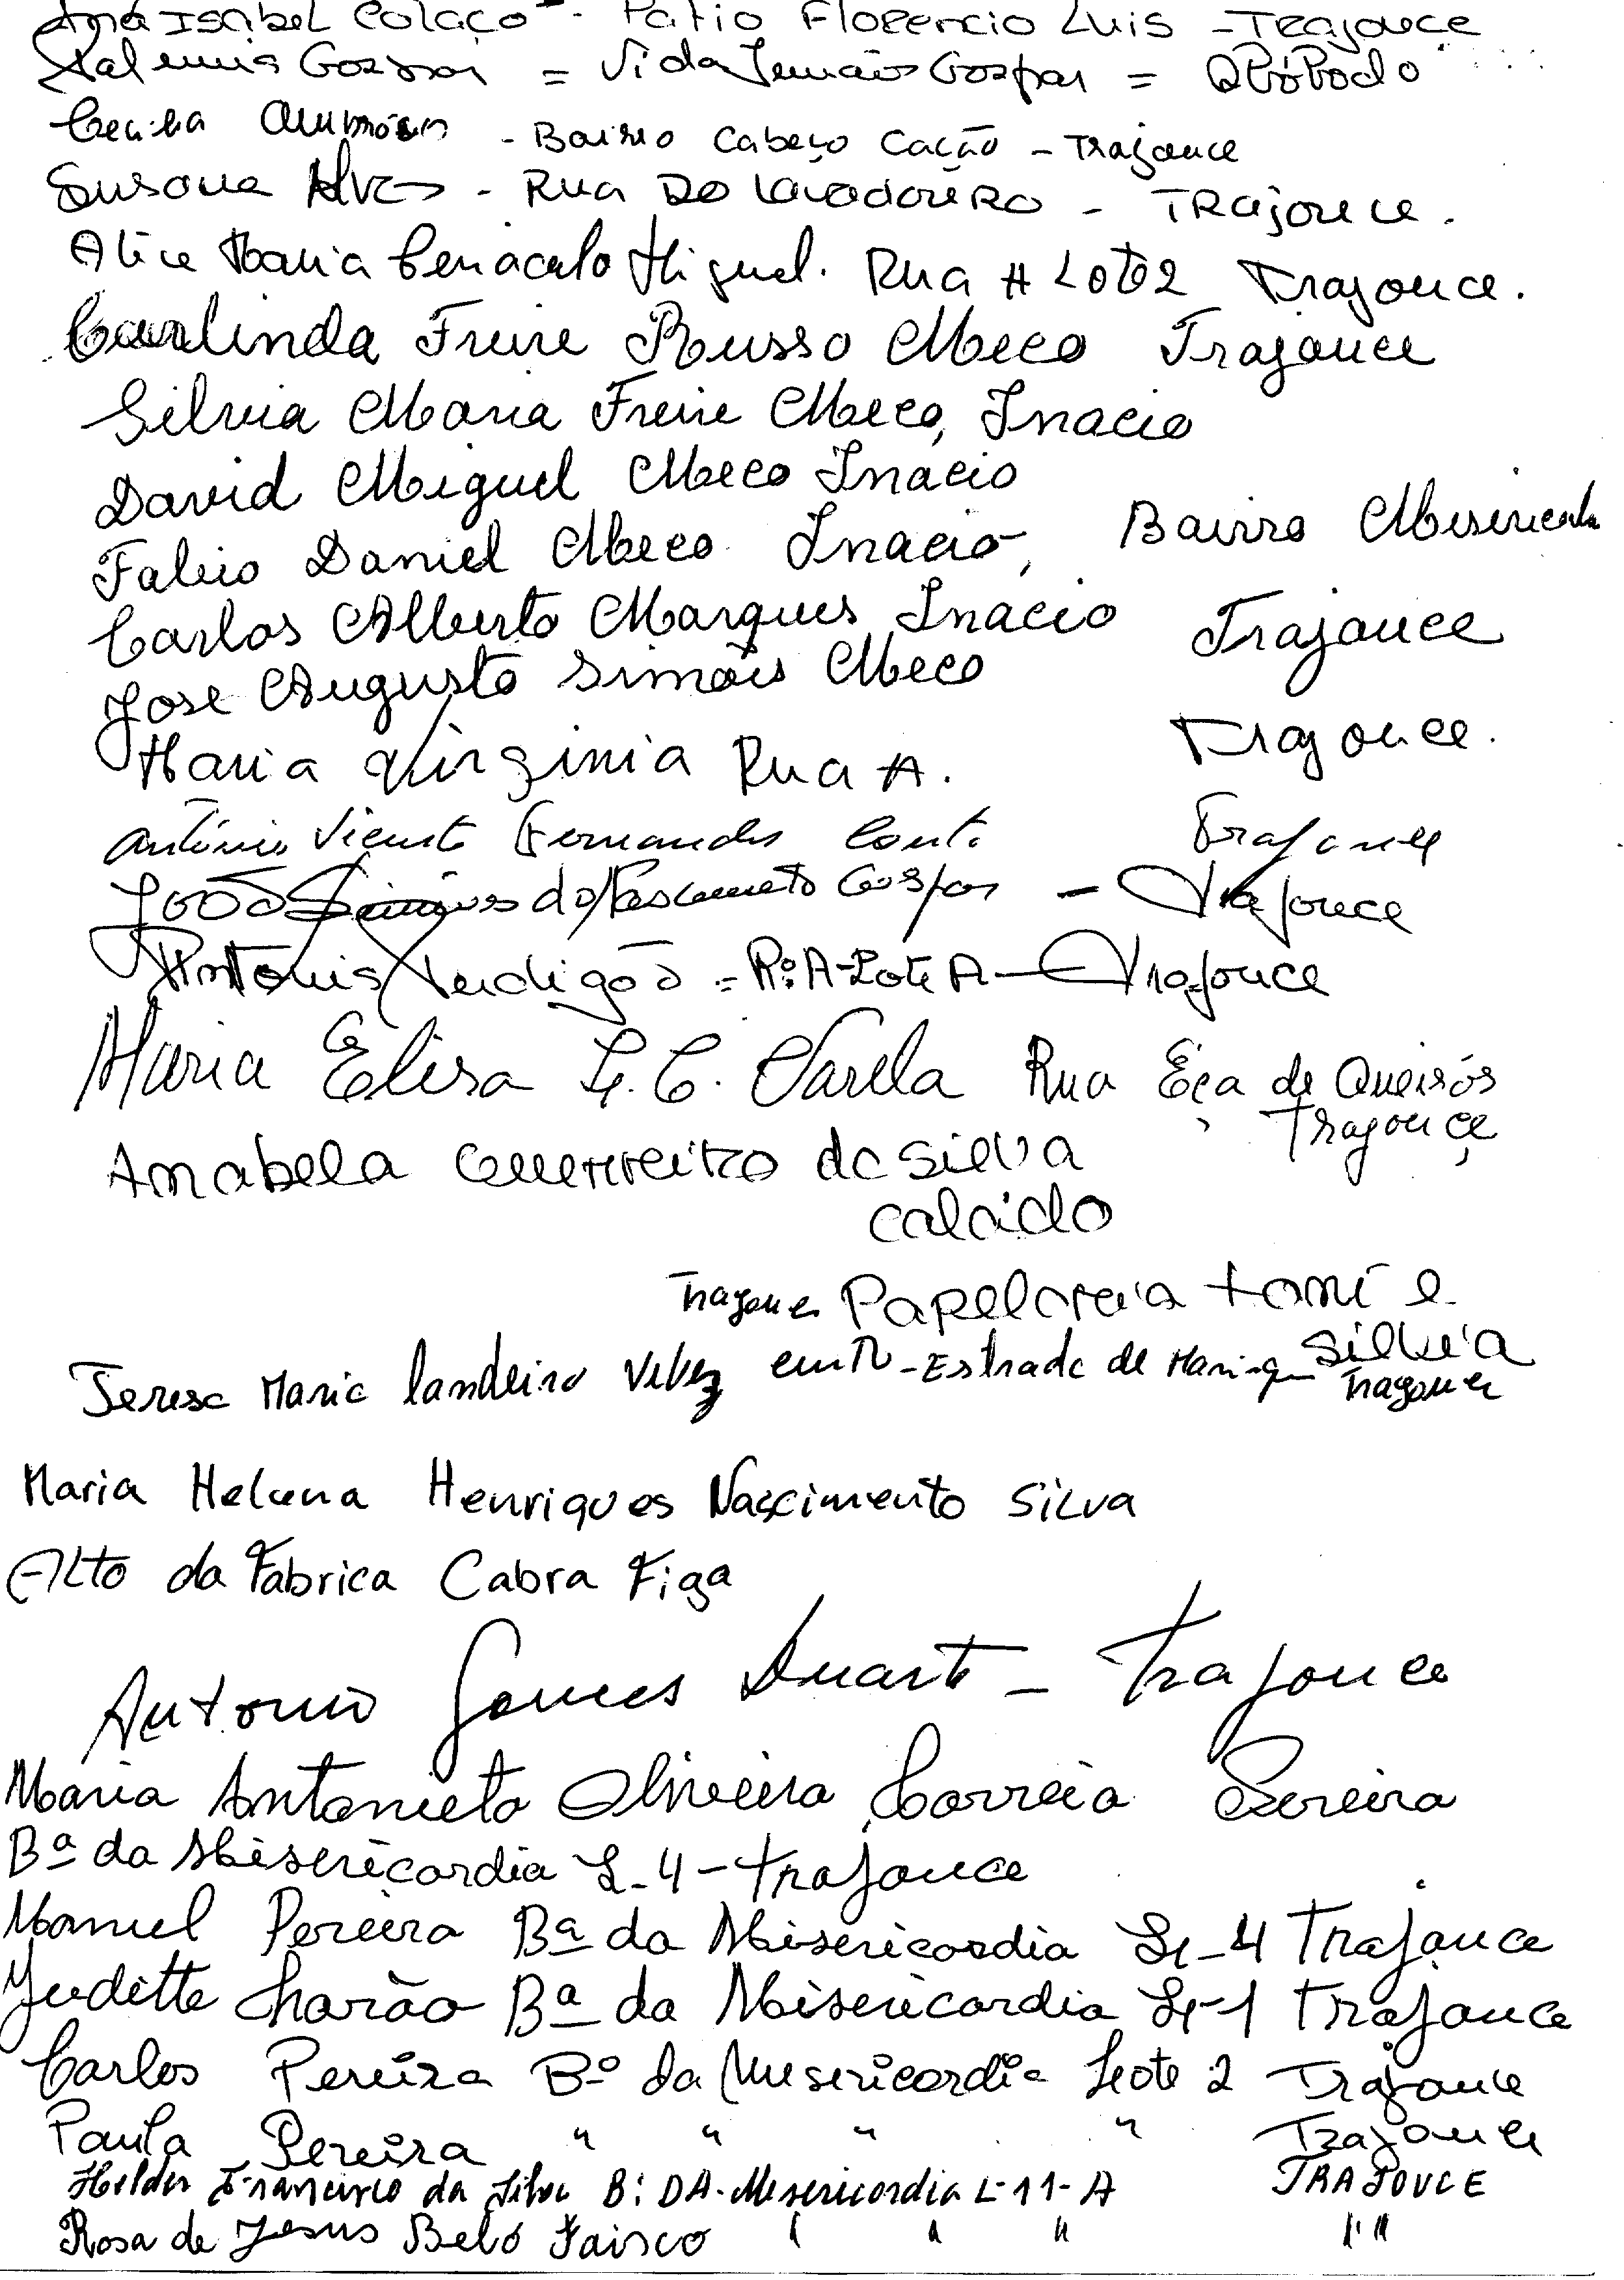 Ana Isabel Colaço - Patio Florencio Luis - Trajouce
Gaspar = Vida Gaspar =
Cecilia - Bairro Cabeço Cação - Trajouce
Susana Alves - Rua Do Lavadouro - Trajouce.
Alice Maria Cenaculo Miguel. Rua A Lote 2 Trajouce.
Carlinda Freire Russo Meco Trajouce
Silvia Maria Freire Meco, Inacio
David Miguel Meco Inacio
Fabio Daniel Meco Inacio, Bairro
Carlos Alberto Marques Inacio Trajouce
Jose Augusto Simois Meco
Maria Virginia Rua A. Trajouce.
António Vicente Fernandes Trajouce
João Simões do Nascimento Gaspar - Trajouce
Antonio Verdigão = Rº A - Lote A - Trajouce
Maria Elisa L. C. Varela Rua Eça de Queirós
Trajouce
Anabela Guerreiro da Silva
calcido
Trajouce Papelaria toni e
Silvia
Teresa Maria Landeiro Velez - Estrada de Manique Trajouce
Maria Helena Henriques Nascimento Silva
Alto da Fabrica Cabra Figa
Antonio Gomes Duarte - Trajouce
Maria Antonieta Oliveira Correia Pereira
Bº da Misericordia L-4 - Trajouce
Manuel Pereira Bº da Misericordia Lt-4 Trajouce
Judette Charão Bº da Misericordia Lt-1 Trajouce
Carlos Pereira Bº da Misericordia Lote 2 Trajouce
Paula Pereira " " " " Trajouce
Helder Francisco da Silva B: DA. Misericordia L-11-A TRAJOUCE
Rosa de Jesus Beló Faisco " " " " "